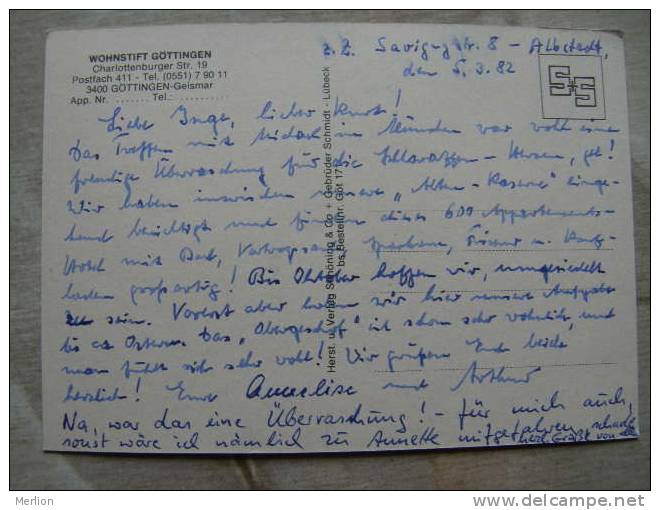 WOHNSTIFT GÖTTINGEN
Charlottenburger Str. 19
Postfach 411 - Tel. (0551) 7 90 11
3400 GÖTTINGEN-Geismar
App. Nr. ....... Tel.: ..........
z. Z. Savignystr. 8 - Albstadt,
den 5.3.82
Liebe Inge, lieber Kurt!
Das Treffen mit in Münden war wohl eine
freudige Überraschung für die Schlaraffen - Herzen, gel!
Wir haben inzwischen unsere „Alten - Kaserne" einge-
hend besichtigt und finden dieses 600 Appartements-
Hotel mit Bad, Vortragssaal, Sparkasse, Friseur u. Kauf-
laden großartig! Bis Oktober hoffen wir, umgesiedelt
zu sein. Vorerst aber haben wir hier unsere Aufgabe
bis ca Ostern. Das „ " ist schon sehr wohnlich und
man fühlt sich sehr wohl! Wir grüßen Euch beide
herzlich! Eure Annelise und Arthur
Na, war das eine Überraschung! - für mich auch,
sonst wäre ich nämlich zu Annette mitgefahren, schade
herzl. Grüße von
Herst. u. Verlag Schöning & Co + Gebrüder Schmidt - Lübeck
bs Bestellnr. Göt 17
Merlion
http://www.delcampe.net